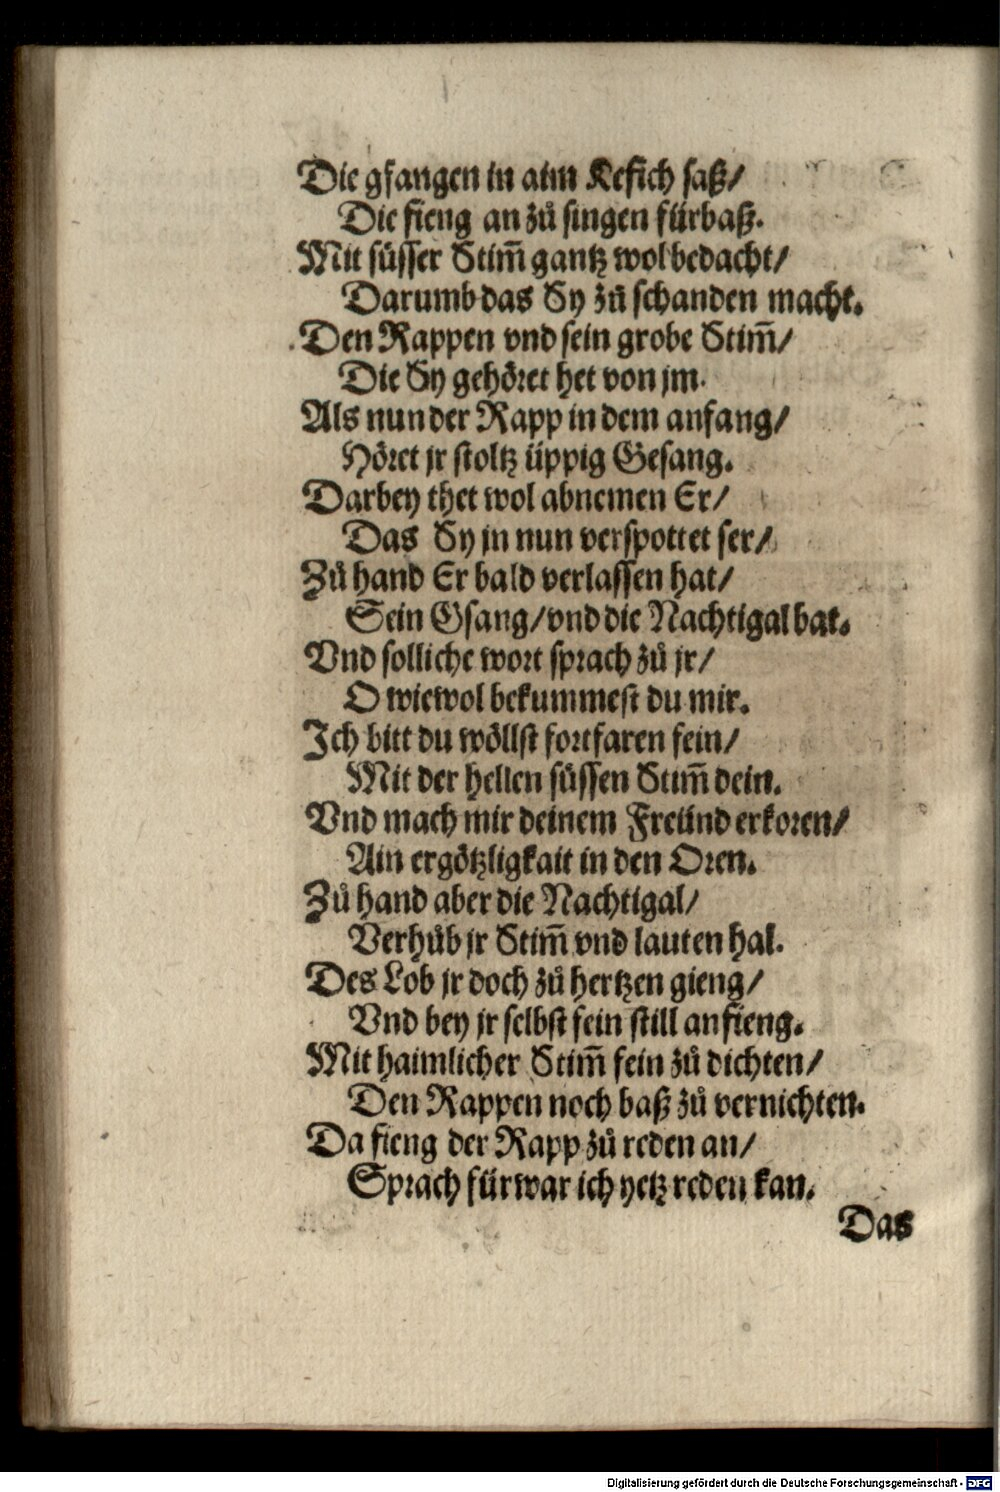 Die gfangen in aim Kefich saß/
Die fieng an zů singen fürbaß.
Mit süsser Stim̃ gantz wol bedacht/
Darumb das Sy zů schanden macht.
Den Rappen vnd sein grobe Stim̃/
Die Sy gehöret het von jm.
Als nun der Rapp in dem anfang/
Höret jr stoltz üppig Gesang.
Darbey thet wol abnemen Er/
Das Sy jn nun verspottet ser/
Zů hand Er bald verlassen hat/
Sein Gsang/ vnd die Nachtigal bat.
Vnd solliche wort sprach zů jr/
O wiewol bekummest du mir.
Ich bitt du wöllst fortfaren fein/
Mit der hellen süssen Stim̃ dein.
Vnd mach mir deinem Freünd erkoren/
Ain ergötzligkait in den Oren.
Zů hand aber die Nachtigal/
Verhůb jr Stim̃ vnd lauten hal.
Des Lob jr doch zů hertzen gieng/
Vnd bey jr selbst fein still anfieng.
Mit haimlicher Stim̃ fein zů dichten/
Den Rappen noch baß zů vernichten.
Da fieng der Rapp zů reden an/
Sprach fürwar ich yetz reden kan.
Das
Digitalisierung gefördert durch die Deutsche Forschungsgemeinschaft - DFG